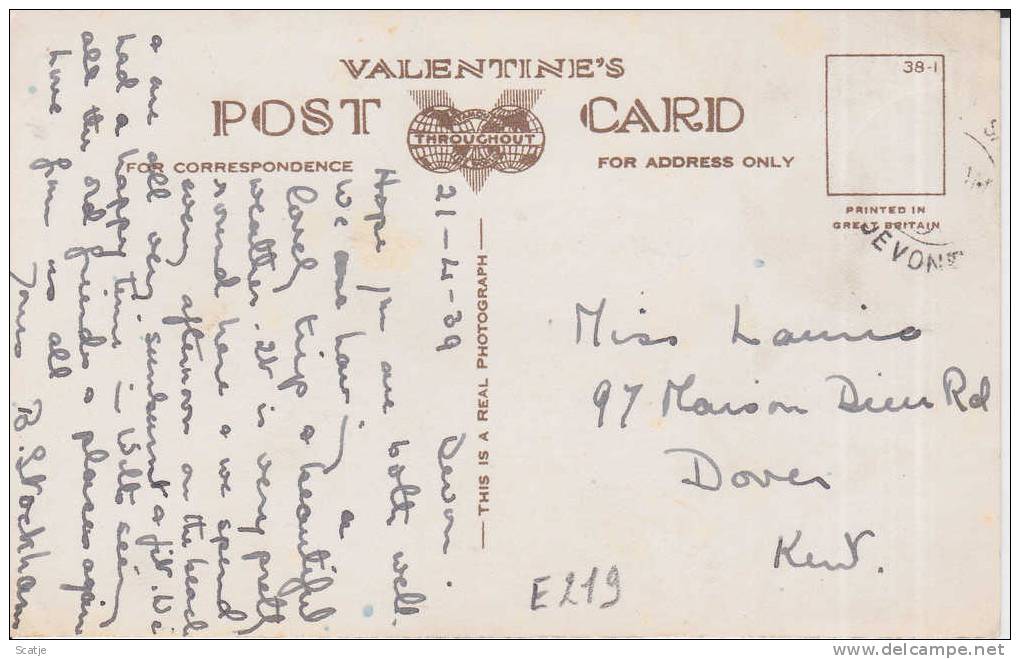 VALENTINE'S
POST CARD
THROUGHOUT
FOR CORRESPONDENCE
FOR ADDRESS ONLY
38-1
PRINTED IN
GREAT BRITAIN
DEVON
THIS IS A REAL PHOTOGRAPH
21-4-39 Devon.
Hope you are both well.
We are having a
lovely trip & beautiful
weather. It is very pretty
round here & we spend
every afternoon on the beach
& are all very sunburnt & fit. We
had a happy time seeing
all the old friends & places again
Love from us all
Yours B. Stockham
Miss
97 Maison Dieu Rd
Dover
Kent.
E219
Scatje
delcampe.net